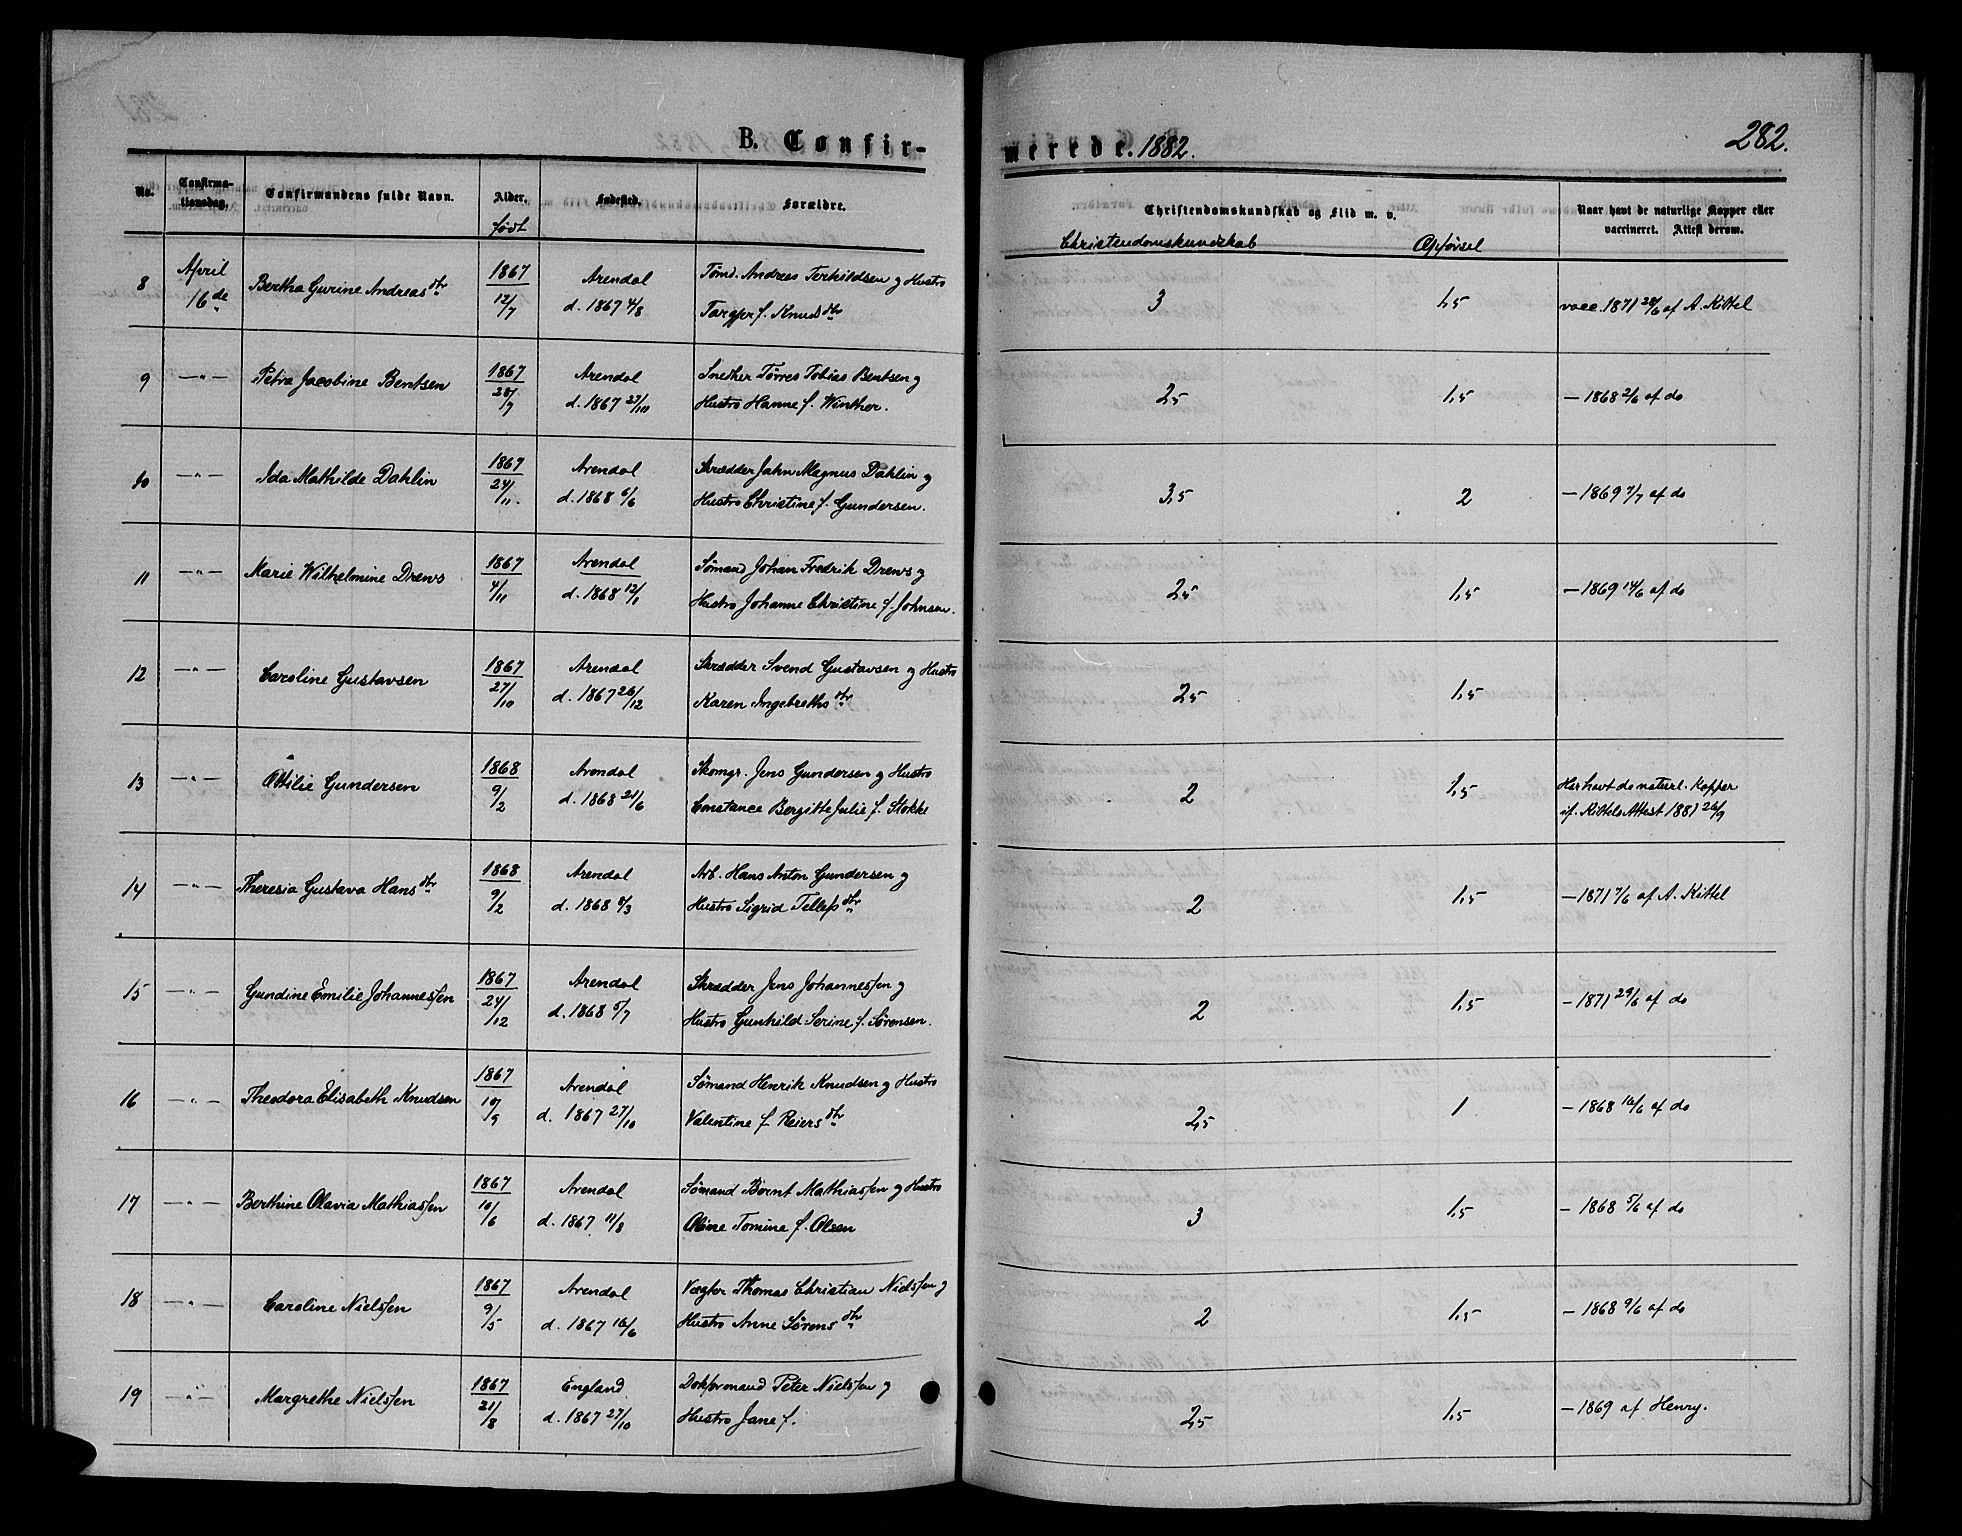 B. Confir-
merede. 1882.
282.
No.
Confirma-
tionsdag.
Confirmandens fulde Navn.
Alder.
født
Fødested.
Forældre.
Christendomskundskab og Flid m. v.
Christendomskundskab
Opførsel
Naar havt de naturlige Kopper eller
vaccineret. Attest derom.
8 April Bertha Gurine Andreasdtr 1867 Arendal Tømd. Andreas Terkildsen og Hustro
16de 12/7 d. 1867 4/8 Targjer f. Knudsdtr 3 1,5 vacc. 1871 28/6 af A. Kittel
9 —"— Petra Jacobine Bentsen 1867 Arendal Snedker Tørres Tobias Bentsen og
28/7 d. 1867 27/10 Hustro Hanne f. Winther. 2,5 1,5 — 1868 2/6 af do
10 —"— Ida Mathilde Dahlin 1867 Arendal Skrædder Jahn Magnus Dahlin og
24/11. d. 1868 6/6 Hustro Christine f. Gundersen. 3,5 2 — 1869 7/7 af do
11 —"— Marie Wilhelmine Drews 1867 Arendal Sømand Johan Fredrik Drews og
4/11 d. 1868 12/1 Hustro Johanne Christine f. Johnsen. 2,5 1,5 — 1869 14/6 af do
12 —"— Caroline Gustavsen 1867 Arendal Skrædder Svend Gustavsen og Hustro
27/10 d. 1867 26/12 Karen Ingebrethsdtr 2,5 1,5
13 —"— Ottilie Gundersen 1868 Arendal Skomgr. Jens Gundersen og Hustro
9/2 d. 1868 21/6 Constance Bergitte Julie f. Stokke 2 1,5 Har havt de naturl. Kopper
if. Kittels Attest 1881 26/9
14 —"— Theresia Gustava Hansdtr 1868 Arendal Arb. Hans Anton Gundersen og
9/2 d. 1868 8/3 Hustro Sigrid Tellefsdtr 2 1,5 — 1871 7/6 af A. Kittel
15 —"— Gundine Emilie Johannessen 1867 Arendal Skrædder Jens Johannessen og
24/12 d. 1868 5/7 Hustro Gunhild Serine f. Sørensen. 2 1,5 — 1871 29/6 af do
16 —"— Theodora Elisabeth Knudsen 1867 Arendal Sømand Henrik Knudsen og Hustro
10/9 d. 1867 27/10 Valentine f. Reiersdtr 2,5 1 — 1868 16/6 af do
17 —"— Berthine Olavia Mathiassen 1867 Arendal Sømand Bernt Mathiassen og Hustro
10/6 d. 1867 11/8 Oline Tomine f. Olsen 3 1,5 — 1868 5/6 af do
18 —"— Caroline Nielssen 1867 Arendal Vægter Thomas Christian Nielssen og
9/5 d. 1867 16/6 Hustro Anne Sørensdtr 2 1,5 — 1868 9/6 af do
19 —"— Margrethe Nielssen 1867 England Dokformand Peter Nielssen og
21/8 d. 1867 27/10 Hustro Jane f. 2,5 1,5 — 1869 af Henry.